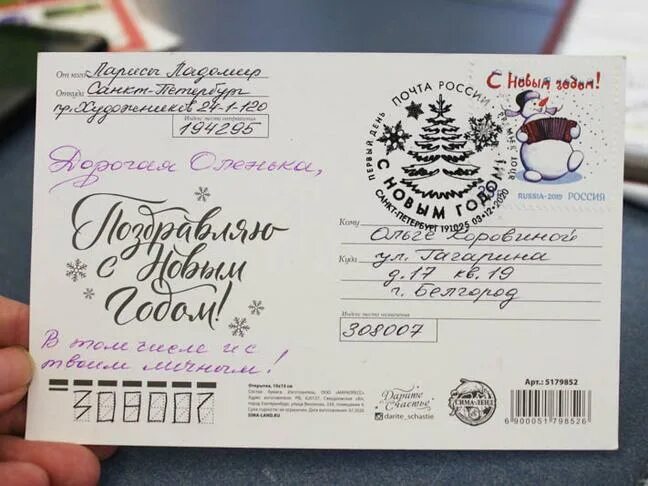 От кого Ларисы Ладомир
Откуда Санкт-Петербург
пр. Художников 24-1-120
Индекс места отправления
194295
Дорогая Оленька,
Поздравляю
с Новым
Годом!
В том числе и с
твоим личным!
308007
ПОЧТА РОССИИ
ПЕРВЫЙ ДЕНЬ
С НОВЫМ ГОДОМ
САНКТ-ПЕТЕРБУРГ 191025 03.12.2020
С Новым годом!
RUSSIA-2019 РОССИЯ
Кому Ольге Коровиной
Куда ул. Гагарина
д. 17 кв. 19
г. Белгород
Индекс места назначения
308007
Открытка, 10х15 см
SIMA-LAND.RU
Дарите
Счастье
darite_schastie
СИМА-ЛЕНД
Арт.: 5179852
6 900051 798526